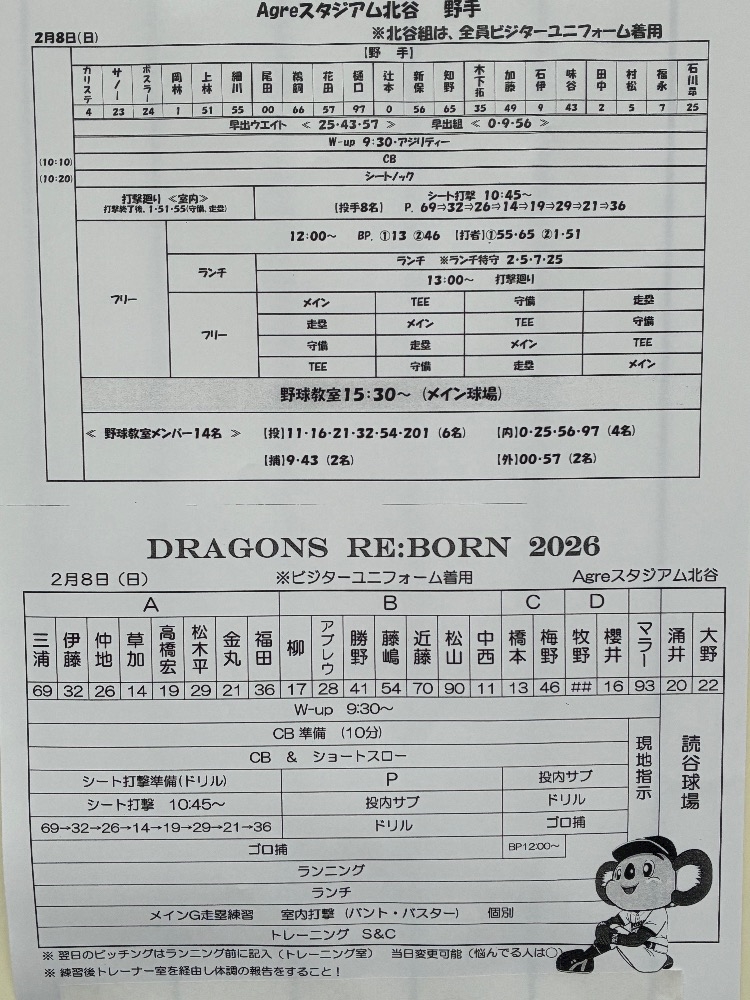 Agreスタジアム北谷 野手
2月8日(日) ※北谷組は、全員ビジターユニフォーム着用
【野 手】
カリステ サノー ボスラー 岡林 上林 細川 尾田 鵜飼 花田 樋口 辻本 新保 知野 木下拓 加藤 石伊 味谷 田中 村松 福永 石川昂
4 23 24 1 51 55 00 66 57 97 0 56 65 35 49 9 43 2 5 7 25
早出ウエイト ≪ 25・43・57 ≫ 早出組 ≪ 0・9・56 ≫
W-up 9:30・アジリティー
(10:10) CB
(10:20) シートノック
打撃廻り ≪室内≫ シート打撃 10:45〜
打撃終了後、1・51・55(守備、走塁) 【投手8名】 P. 69⇒32⇒26⇒14⇒19⇒29⇒21⇒36
12:00〜 BP. ①13 ②46 【打者】①55・65 ②1・51
ランチ ランチ ※ランチ特守 2・5・7・25
13:00〜 打撃廻り
フリー フリー
メイン TEE 守備 走塁
走塁 メイン TEE 守備
守備 走塁 メイン TEE
TEE 守備 走塁 メイン
野球教室15:30〜 (メイン球場)
≪ 野球教室メンバー14名 ≫ 【投】11・16・21・32・54・201 (6名) 【内】0・25・56・97 (4名)
【捕】9・43 (2名) 【外】00・57 (2名)
DRAGONS RE:BORN 2026
2月8日(日) ※ビジターユニフォーム着用 Agreスタジアム北谷
A B C D
三浦 伊藤 仲地 草加 高橋宏 松木平 金丸 福田 柳 アブレウ 勝野 藤嶋 近藤 松山 中西 橋本 梅野 牧野 櫻井 マラー 涌井 大野
69 32 26 14 19 29 21 36 17 28 41 54 70 90 11 13 46 ## 16 93 20 22
W-up 9:30〜
CB 準備 (10分)
CB & ショートスロー
現地指示 読谷球場
シート打撃準備(ドリル) P 投内サブ
シート打撃 10:45〜 投内サブ ドリル
69→32→26→14→19→29→21→36 ドリル ゴロ捕
ゴロ捕 BP12:00〜
ランニング
ランチ
メインG走塁練習 室内打撃 (バント・バスター) 個別
トレーニング S&C
※ 翌日のピッチングはランニング前に記入(トレーニング室) 当日変更可能(悩んでる人は○)
※ 練習後トレーナー室を経由し体調の報告をすること!